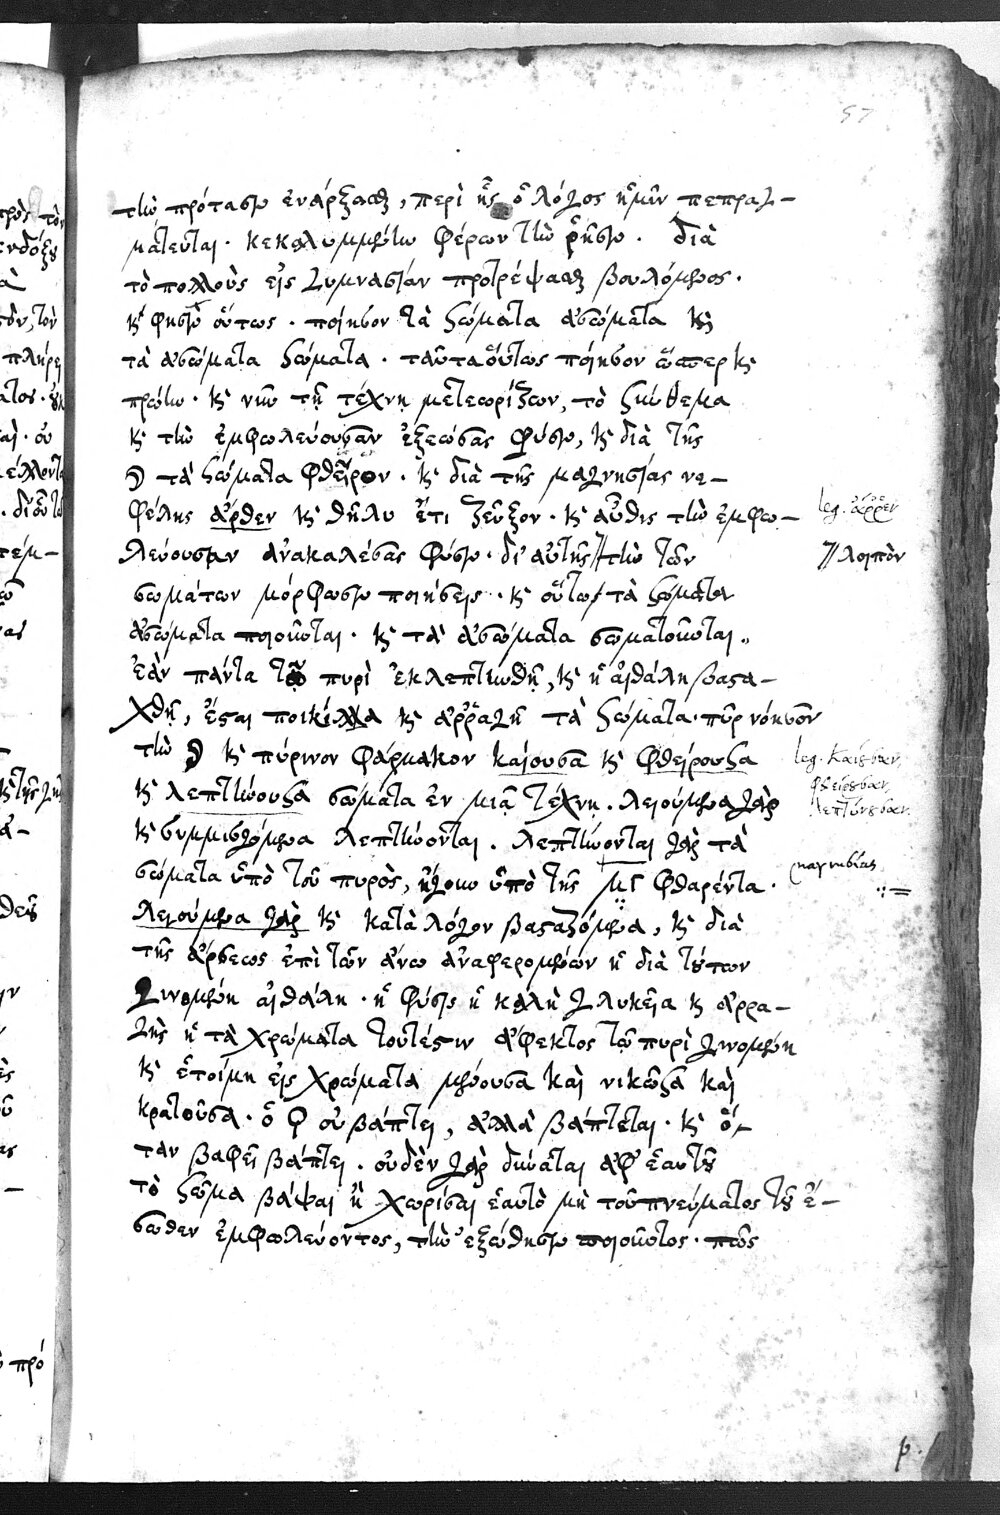 57
τὴν πρότασιν ἐνάρξασθαι, περὶ ἧς ὁ λόγος ἡμῖν πεπραγ-
μάτευται. κεκαλυμμένην φέρων τὴν ῥῆσιν. διὰ
τὸ πολλοὺς εἰς γυμνασίαν προτρέψασθαι βουλόμενος.
καὶ φησὶν οὕτως. ποίησον τὰ σώματα ἀσώματα καὶ
τὰ ἀσώματα σώματα. ταῦτα οὕτως ποίησον ὥσπερ καὶ
πρώην. καὶ νῦν τῇ τέχνῃ μετεωρίζων, τὸ σύνθεμα
καὶ τὴν ἐμφωλεύουσαν ἐξεώσας φύσιν, καὶ διὰ τῆς
☽ τὰ σώματα φθεῖρον. καὶ διὰ τῆς μαγνησίας νε-
φέλης ἄρθεν καὶ θῆλυ ἔτι ζεῦξον. καὶ αὖθις τὴν ἐμφω-
leg. ἄῤῥεν
λεύουσαν ἀνακαλέσας φύσιν. δι' αὐτῆς // τὴν τῶν
// λοιπὸν
σωμάτων μόρφωσιν ποιήσεις. καὶ οὕτω τὰ σώματα
ἀσώματα ποιοῦνται. καὶ τὰ ἀσώματα σωματοῦνται..
ἐὰν πάντα τῷ πυρὶ ἐκλεπτυνθῇ, καὶ ἡ αἰθάλη βαστα-
χθῇ, ἔσται ποικίλλα καὶ ἀρραγῆ τὰ σώματα. πῦρ νόησον
τὴν ☽ καὶ πύρινον φάρμακον καίουσα καὶ φθείρουσα
leg. καίουσαν,
φθείρουσαν,
λεπτύνουσαν.
καὶ λεπτύνουσα σώματα ἐν μιᾷ τέχνῃ. λειούμενα γὰρ
καὶ συμμισγόμενα λεπτύνονται. λεπτύνονται γὰρ τὰ
σώματα ὑπὸ τοῦ πυρὸς, ἤγουν ὑπὸ τῆς μγ φθαρέντα.
μαγνησίας
λειούμενα γὰρ καὶ κατὰ λόγον βασταζόμενα, καὶ διὰ
τῆς ἄρσεως ἐπὶ τῶν ἄνω ἀναφερομένων ἡ διὰ τούτων
γινομένη αἰθάλη. ἡ φύσις ἡ καλὴ γλυκεῖα καὶ ἀρρα-
γὴς ἡ τὰ χρώματα τουτέστιν ἄφεκτος τῷ πυρὶ γινομένη
καὶ ἑτοίμη εἰς χρώματα μένουσα καὶ νικῶσα καὶ
κρατοῦσα. ὁ ♀ οὐ βάπτει, ἀλλὰ βάπτεται. καὶ ὅ-
ταν βαφεῖ βάπτει. οὐδὲν γὰρ δύναται ἀφ' ἑαυτοῦ
τὸ σῶμα βάψαι ἢ χωρίσαι ἑαυτὸ μὴ τοῦ πνεύματος τοῦ ἔ-
σωθεν ἐμφωλεύοντος, τὴν ἐξώθησιν ποιοῦντος. πῶς